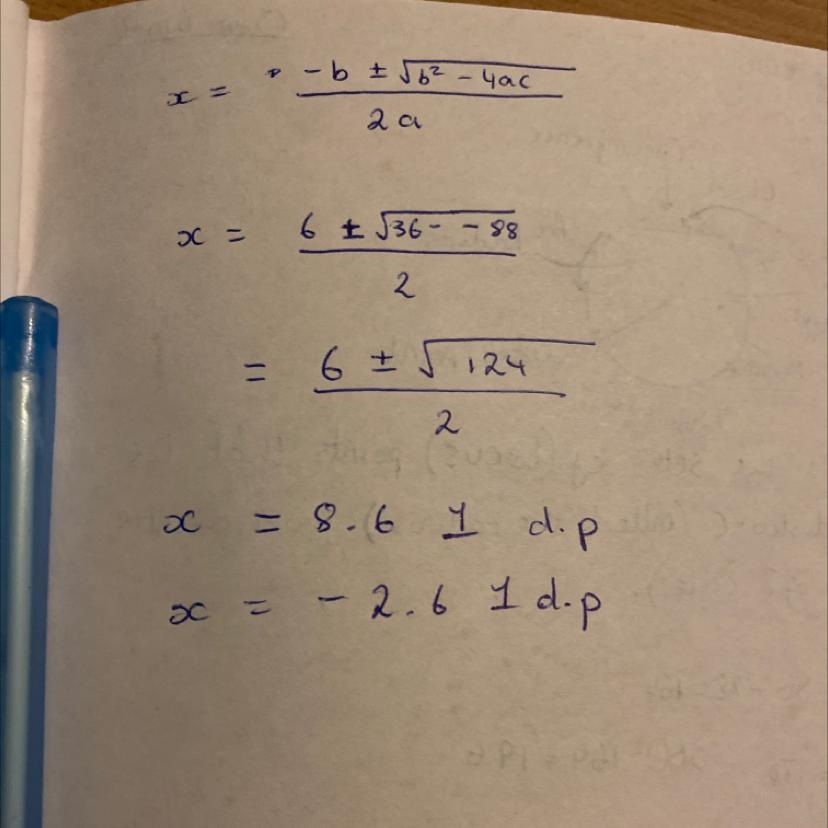 x = -b ± √b² - 4ac
2a
x = 6 ± √36 - - 88
2
= 6 ± √124
2
x = 8.6 1 d.p
x = - 2.6 1 d.p